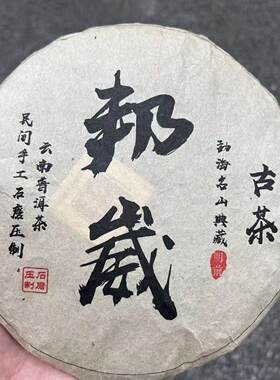 古茶
勐海名山典藏
明前
邦崴
云南普洱茶
民间手工石磨压制
石磨
压制